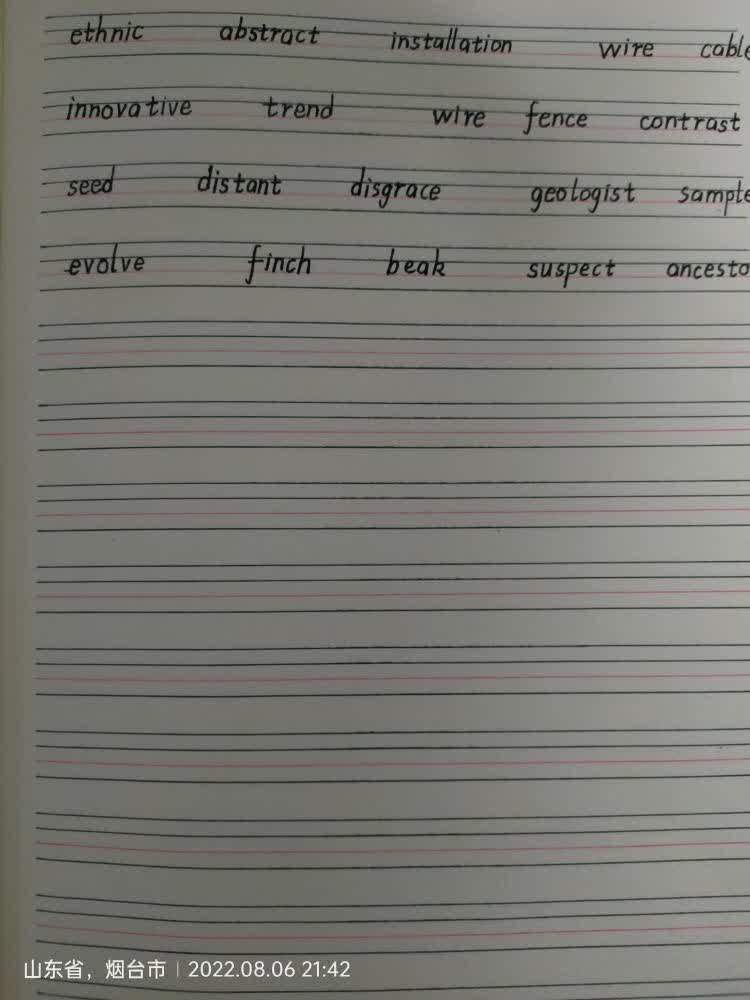 ethnic abstract installation wire cable
innovative trend wire fence contrast
seed distant disgrace geologist sample
evolve finch beak suspect ancesto
山东省，烟台市 | 2022.08.06 21:42